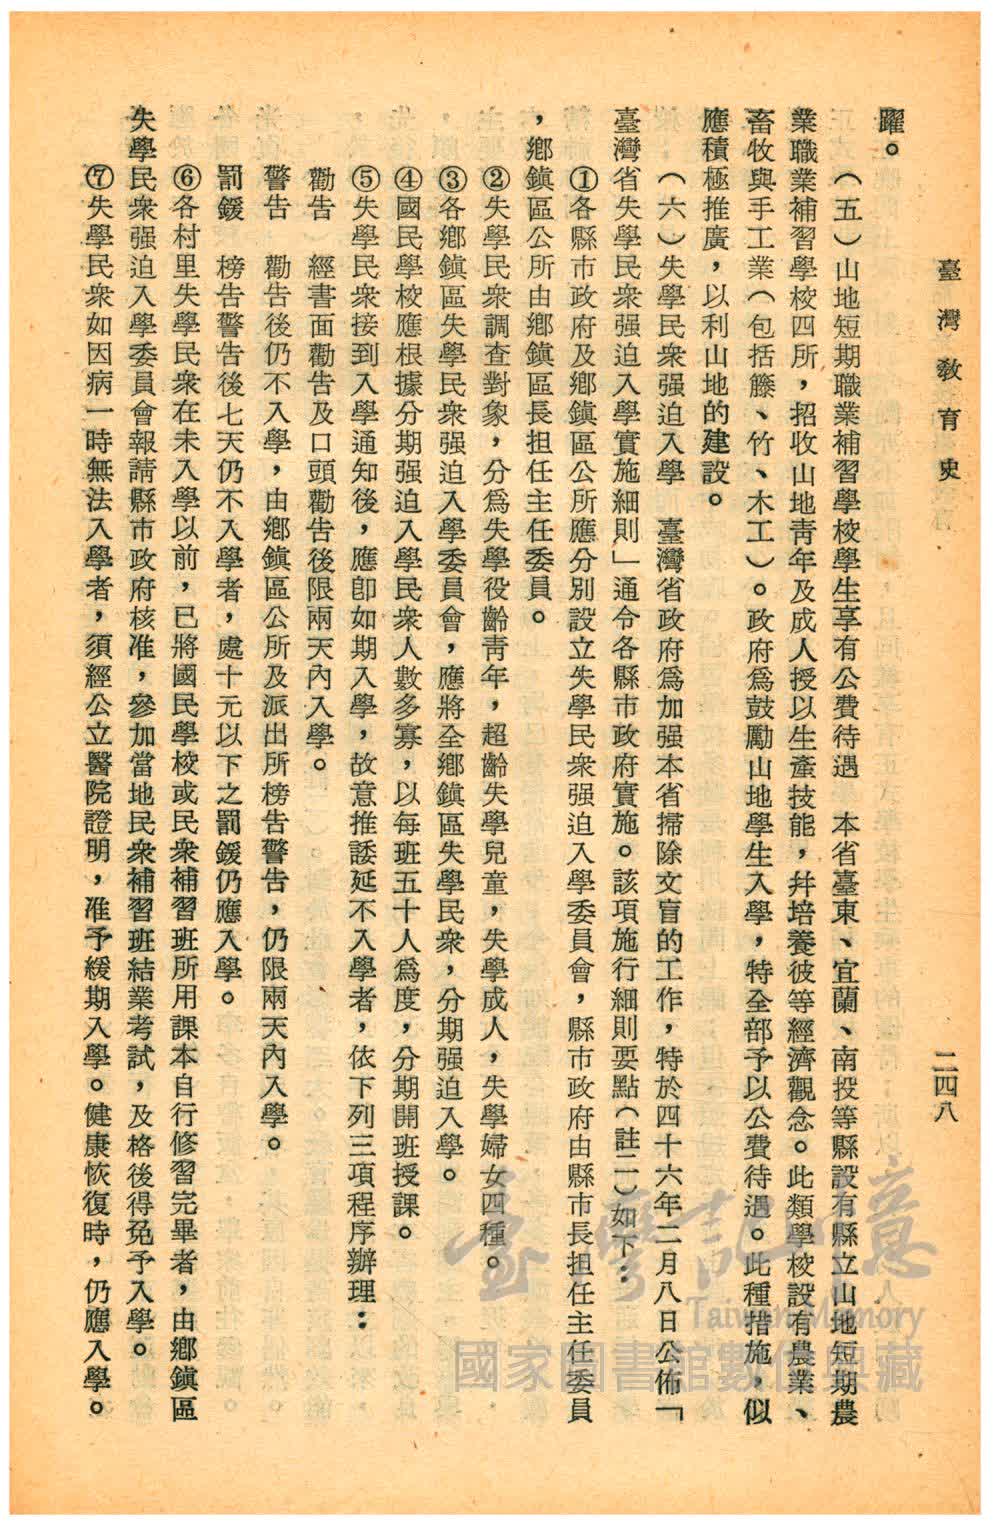 臺灣教育史
二四八
躍。
（五）山地短期職業補習學校學生享有公費待遇　本省臺東、宜蘭、南投等縣設有縣立山地短期農
業職業補習學校四所，招收山地靑年及成人授以生產技能，幷培養彼等經濟觀念。此類學校設有農業、
畜牧與手工業（包括籐、竹、木工）。政府爲鼓勵山地學生入學，特全部予以公費待遇。此種措施，似
應積極推廣，以利山地的建設。
（六）失學民衆强迫入學　臺灣省政府爲加强本省掃除文盲的工作，特於四十六年二月八日公佈「
臺灣省失學民衆强迫入學實施細則」通令各縣市政府實施。該項施行細則要點（註二）如下：
①各縣市政府及鄉鎭區公所應分別設立失學民衆强迫入學委員會，縣市政府由縣市長担任主任委員
，鄉鎭區公所由鄉鎭區長担任主任委員。
②失學民衆調查對象，分爲失學役齡靑年，超齡失學兒童，失學成人，失學婦女四種。
③各鄉鎭區失學民衆强迫入學委員會，應將全鄉鎭區失學民衆，分期强迫入學。
④國民學校應根據分期强迫入學民衆人數多寡，以每班五十人爲度，分期開班授課。
⑤失學民衆接到入學通知後，應卽如期入學，故意推諉延不入學者，依下列三項程序辦理：
勸告　經書面勸告及口頭勸告後限兩天內入學。
警告　勸告後仍不入學，由鄉鎭區公所及派出所榜告警告，仍限兩天內入學。
罰鍰　榜告警告後七天仍不入學者，處十元以下之罰鍰仍應入學。
⑥各村里失學民衆在未入學以前，已將國民學校或民衆補習班所用課本自行修習完畢者，由鄉鎭區
失學民衆强迫入學委員會報請縣市政府核准，參加當地民衆補習班結業考試，及格後得免予入學。
⑦失學民衆如因病一時無法入學者，須經公立醫院證明，准予緩期入學。健康恢復時，仍應入學。
臺灣記憶
Taiwan Memory
國家圖書館數位典藏